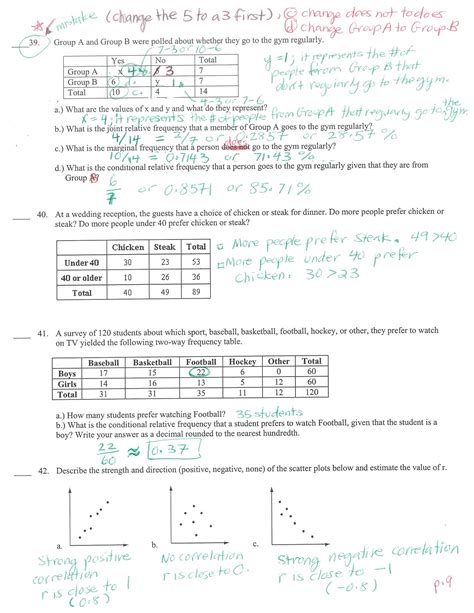 * mistake (change the 5 to a 3 first), ⓒ change does not to does
ⓓ change Group A to Group B
39. Group A and Group B were polled about whether they go to the gym regularly.
7-3 or 10-6
Yes No Total
Group A x 4 3 7
Group B 6 y 1 7
Total 10 4 14
y = 1; it represents the # of
people from Group B that
don't regularly go to the gym.
4-3 or 7-6
a.) What are the values of x and y and what do they represent?
x = 4; it represents the # of people from Group A that regularly go to the gym
b.) What is the joint relative frequency that a member of Group A goes to the gym regularly?
4/14 = 2/7 or 0.2857 or 28.57%
c.) What is the marginal frequency that a person does not go to the gym regularly?
10/14 = 0.7143 or 71.43%
d.) What is the conditional relative frequency that a person goes to the gym regularly given that they are from
Group B?
6/7 or 0.8571 or 85.71%
40. At a wedding reception, the guests have a choice of chicken or steak for dinner. Do more people prefer chicken or
steak? Do more people under 40 prefer chicken or steak?
Chicken Steak Total
Under 40 30 23 53
40 or older 10 26 36
Total 40 49 89
More people prefer steak. 49>40
More people under 40 prefer
chicken: 30>23
41. A survey of 120 students about which sport, baseball, basketball, football, hockey, or other, they prefer to watch
on TV yielded the following two-way frequency table.
Baseball Basketball Football Hockey Other Total
Boys 17 15 22 6 0 60
Girls 14 16 13 5 12 60
Total 31 31 35 11 12 120
a.) How many students prefer watching Football? 35 students
b.) What is the conditional relative frequency that a student prefers to watch Football, given that the student is a
boy? Write your answer as a decimal rounded to the nearest hundredth.
22/60 ≈ 0.37
42. Describe the strength and direction (positive, negative, none) of the scatter plots below and estimate the value of r.
a. b. c.
Strong positive
correlation
r is close to 1
(0.8)
No correlation
r is close to 0.
Strong negative correlation
r is close to -1
(-0.8)
p.9